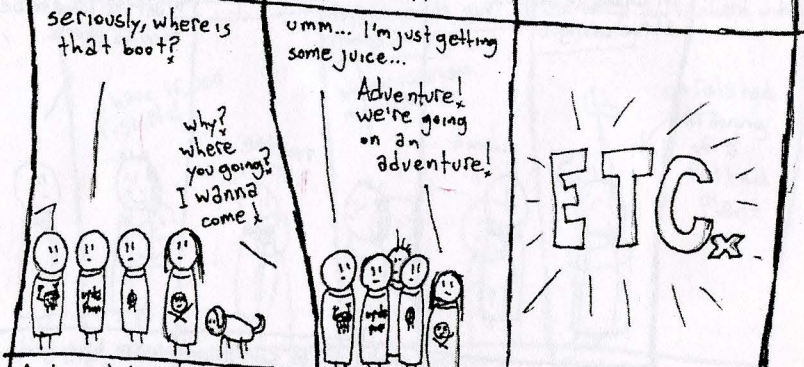 seriously, where is
that boot?
why?
where
you going?
I wanna
come!
umm... I'm just getting
some juice...
Adventure!
we're going
on an
adventure!
ETC.